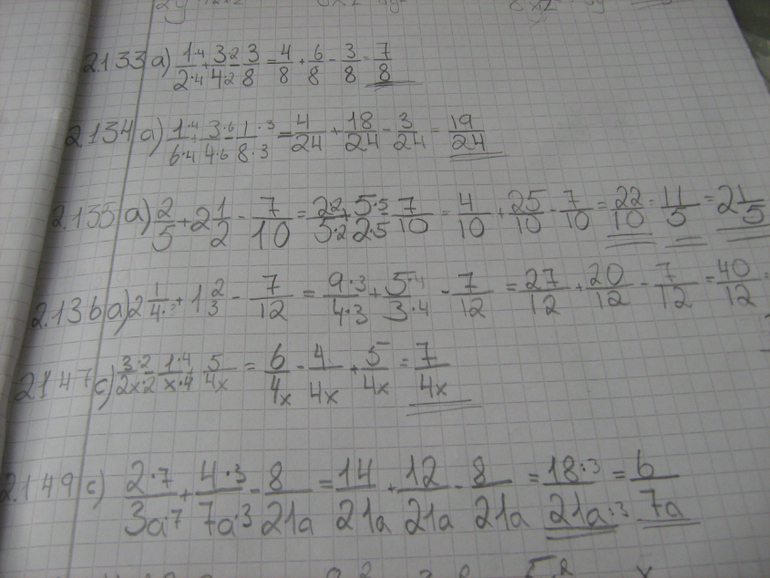 2133 a) 1·4/2·4 + 3·2/4·2 - 3/8 = 4/8 + 6/8 - 3/8 = 7/8
2134 a) 1·4/6·4 + 3·6/4·6 - 1·3/8·3 = 4/24 + 18/24 - 3/24 = 19/24
2.135 a) 2/5 + 2 1/2 - 7/10 = 2·2/5·2 + 5·5/2·5 - 7/10 = 4/10 + 25/10 - 7/10 = 22/10 = 11/5 = 2 1/5
2.136 a) 2 1/4 + 1 2/3 - 7/12 = 9·3/4·3 + 5·4/3·4 - 7/12 = 27/12 + 20/12 - 7/12 = 40/12
2147 c) 3·2/2x·2 - 1·4/x·4 + 5/4x = 6/4x - 4/4x + 5/4x = 7/4x
2.149 c) 2·7/3a·7 + 4·3/7a·3 - 8/21a = 14/21a + 12/21a - 8/21a = 18:3/21a:3 = 6/7a